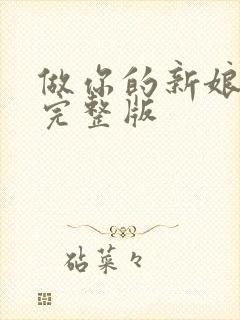 做你的新娘
完整版
砧菜々